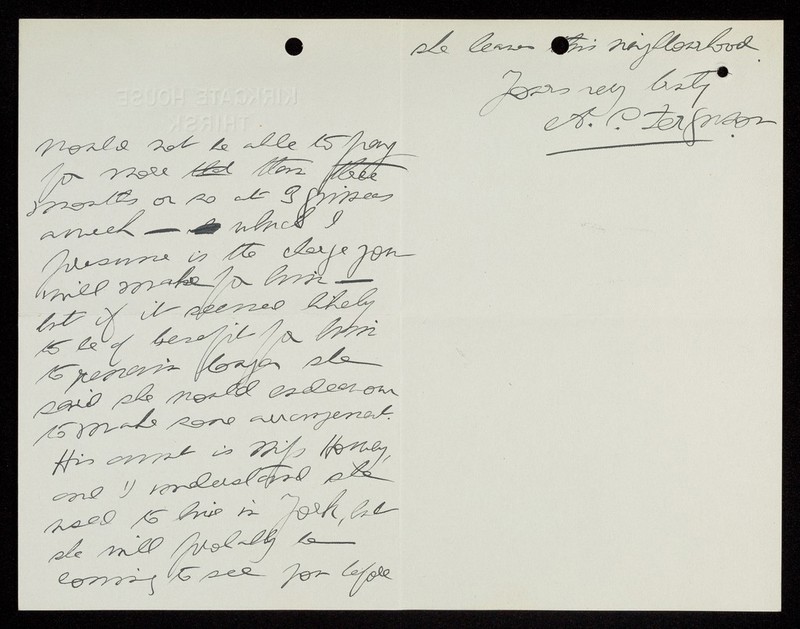 KIRKGATE HOUSE
THIRSK
would not be able to pay
for more than three
months or so at 3 guineas
a week — which I
presume is the charge you
will make for him —
but if it seemed likely
to be of benefit for him
to remain longer she
said she would endeavour
to make some arrangement.
His aunt is Miss
and I understand she
used to live in York, but
she will probably be
coming to see you before
she leaves this neighbourhood.
Yours very truly
A. C. Ferguson